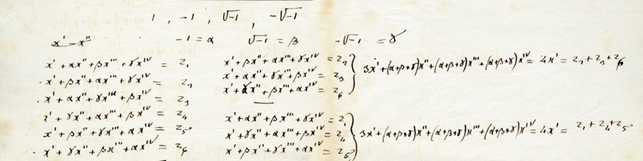 1 , -1 , √-1 , -√-1
x' - x'' -1 = α √-1 = β -√-1 = γ
x' + αx'' + βx''' + γx^IV = z₁
x' + βx'' + αx''' + γx^IV = z₂
x' + αx'' + γx''' + βx^IV = z₃
x' + γx'' + αx''' + βx^IV = z₄
x' + βx'' + γx''' + αx^IV = z₅
x' + γx'' + βx''' + αx^IV = z₆
x' + βx'' + αx''' + γx^IV = z₂
x' + αx'' + γx''' + βx^IV = z₃
x' + γx'' + βx''' + αx^IV = z₆
3x' + (α+β+γ)x'' + (α+β+γ)x''' + (α+β+γ)x^IV = 4x' = z₂ + z₃ + z₆
x' + αx'' + βx''' + γx^IV = z₁
x' + γx'' + αx''' + βx^IV = z₄
x' + βx'' + γx''' + αx^IV = z₅
3x' + (α+β+γ)x'' + (α+β+γ)x''' + (α+β+γ)x^IV = 4x' = z₁ + z₄ + z₅